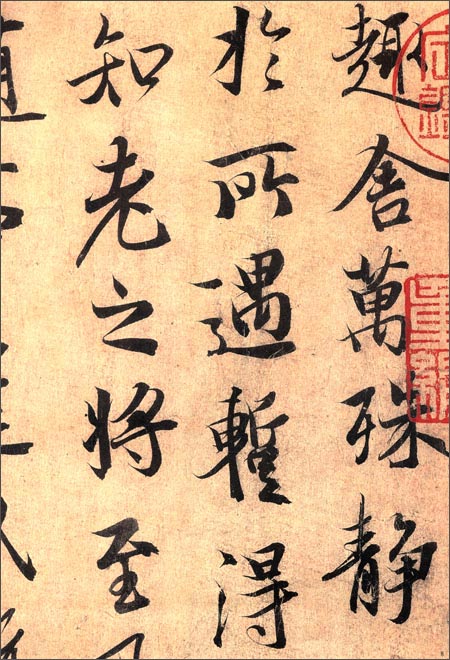 趣舍萬殊静
於所遇暫得
知老之将至